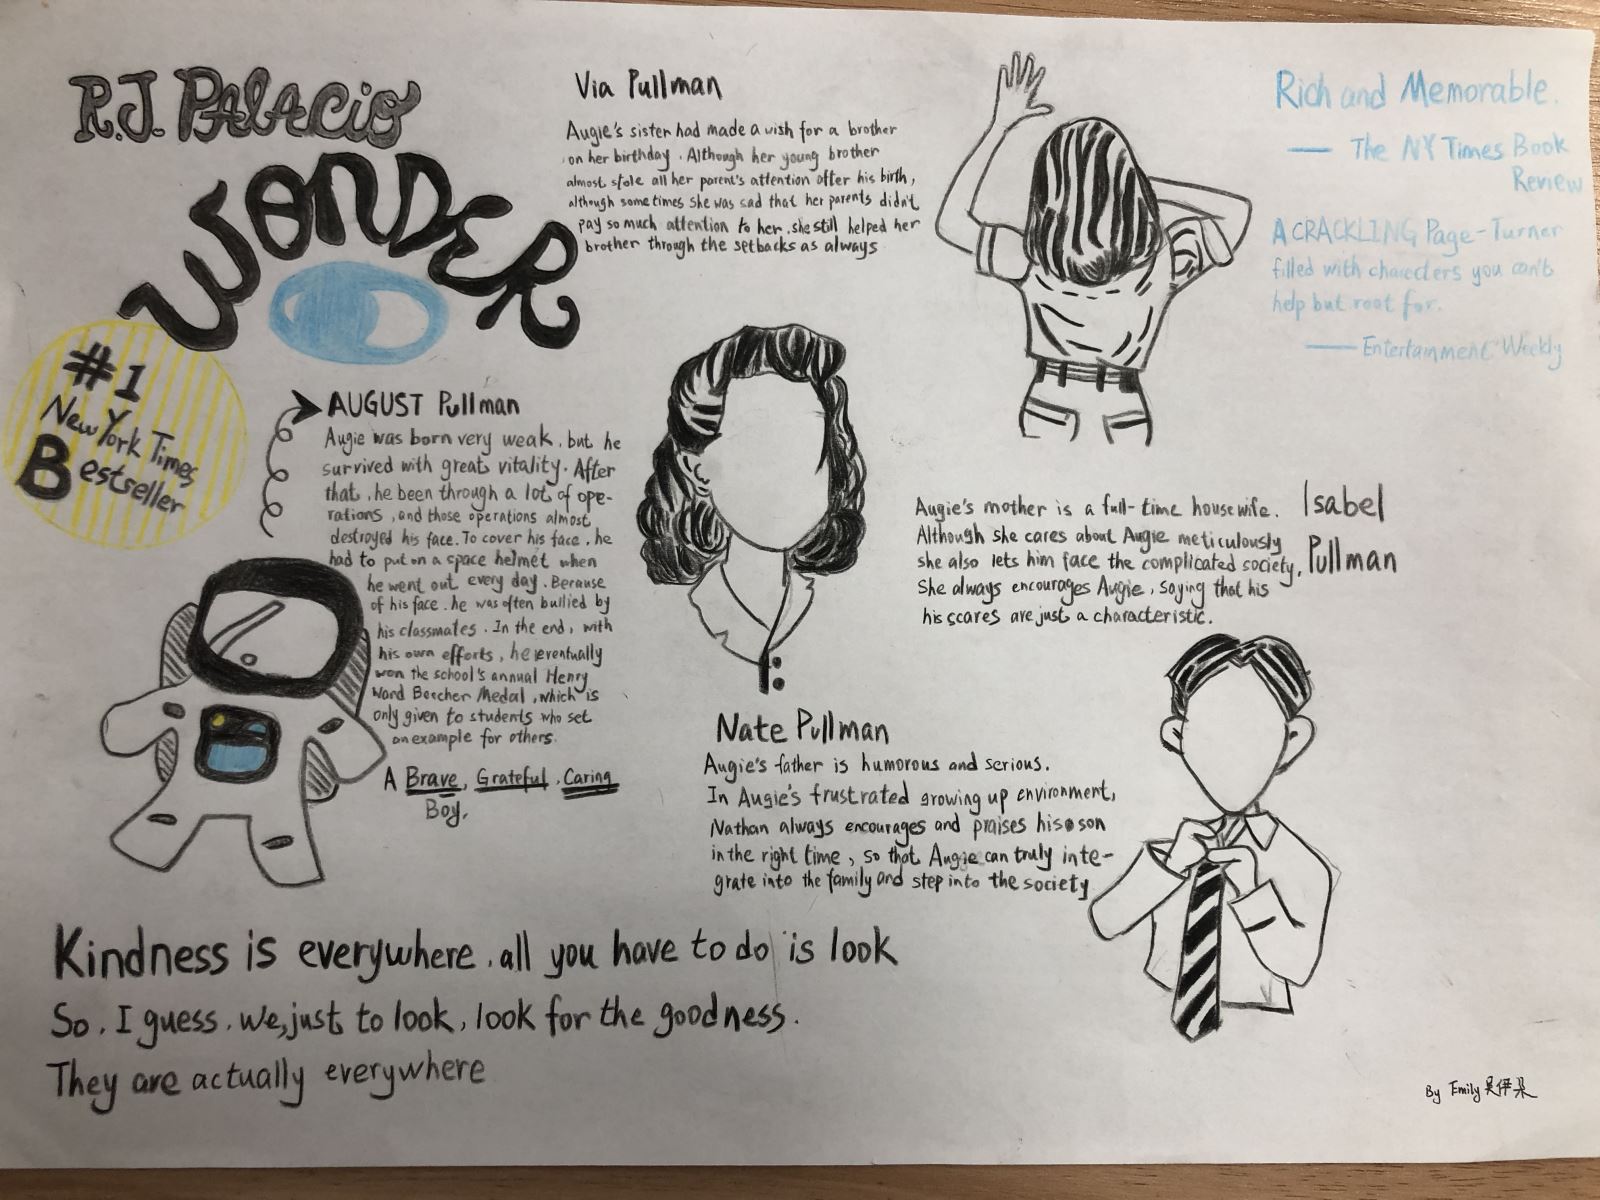 R.J. PALACIO
WONDER
#1
New York Times
Bestseller
Via Pullman
Augie's sister had made a wish for a brother
on her birthday. Although her young brother
almost stole all her parent's attention after his birth,
although sometimes she was sad that her parents didn't
pay so much attention to her, she still helped her
brother through the setbacks as always
Rich and Memorable.
— The NY Times Book
Review
A CRACKLING Page-Turner
filled with charecters you can't
help but root for.
— Entertainment Weekly
AUGUST Pullman
Augie was born very weak, but he
survived with great vitality. After
that, he been through a lot of ope-
rations, and those operations almost
destroyed his face. To cover his face, he
had to put on a space helmet when
he went out every day. Because
of his face, he was often bullied by
his classmates. In the end, with
his own efforts, he eventually
won the school's annual Henry
Ward Beecher Medal, which is
only given to students who set
an example for others.
A Brave, Grateful, Caring
Boy.
Isabel
Pullman
Augie's mother is a full-time housewife.
Although she cares about Augie meticulously
she also lets him face the complicated society,
She always encourages Augie, saying that his
his scares are just a characteristic.
Nate Pullman
Augie's father is humorous and serious.
In Augie's frustrated growing up environment,
Nathan always encourages and praises his son
in the right time, so that Augie can truly inte-
grate into the family and step into the society
Kindness is everywhere, all you have to do is look
So, I guess, we, just to look, look for the goodness.
They are actually everywhere
By Emily 吴伊朵